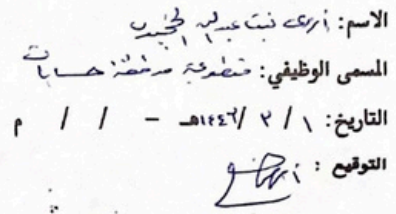 الاسم: أروى بنت عبدالله
المسمى الوظيفي: متطوعة مدققة حسابات
التاريخ: ١ / ٣ / ١٤٤٦هـ - / / م
التوقيع :